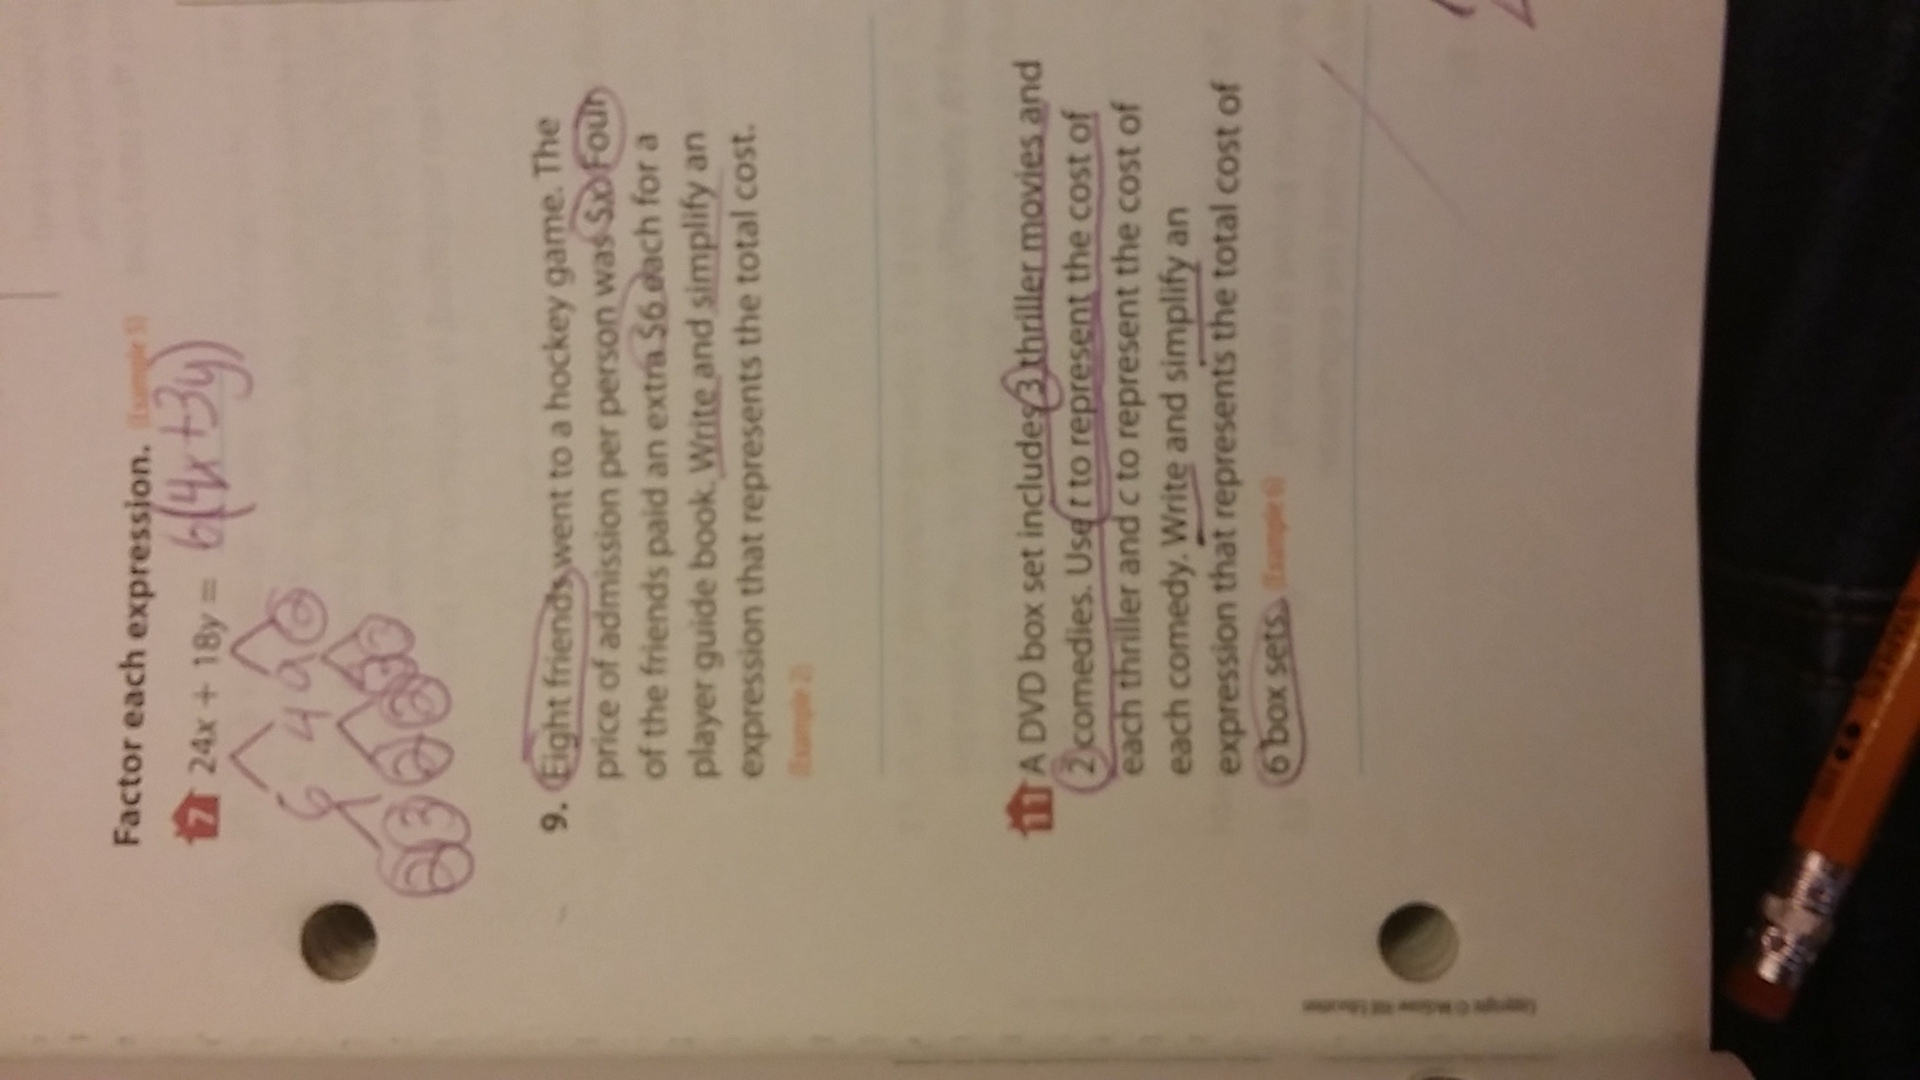 Factor each expression. (Example 5)
7 24x + 18y = 6(4x + 3y)
6 4 9 2
2 3 2 2 3 3
9. Eight friends went to a hockey game. The
price of admission per person was $x. Four
of the friends paid an extra $6 each for a
player guide book. Write and simplify an
expression that represents the total cost.
(Example 2)
11 A DVD box set includes 3 thriller movies and
2 comedies. Use t to represent the cost of
each thriller and c to represent the cost of
each comedy. Write and simplify an
expression that represents the total cost of
6 box sets. (Example 6)
Copyright © McGraw-Hill Education